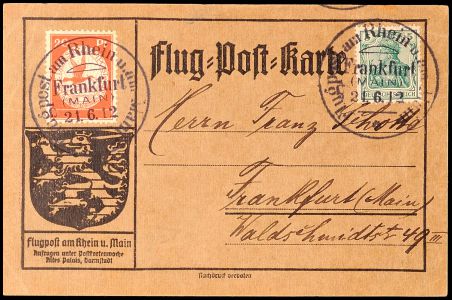 Flug-Post-Karte
Flugpost am Rhein u. am Main
Frankfurt
(MAIN)
21.6.12
Flugpost am Rhein u. am Main
Frankfurt
(MAIN)
21.6.12
Herrn Franz
Frankfurt (Main)
Waldschmidtstr 49 III
Flugpost am Rhein u. Main
Anfragen unter Postkartenwoche
Altes Palais, Darmstadt
Nachdruck verboten